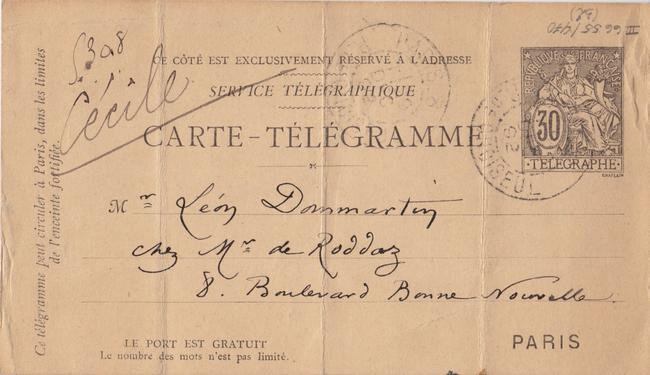 CE CÔTÉ EST EXCLUSIVEMENT RÉSERVÉ À L'ADRESSE
SERVICE TÉLÉGRAPHIQUE
CARTE-TÉLÉGRAMME
RÉPUBLIQUE FRANÇAISE
30
TÉLÉGRAPHE
CHAPLAIN
Cécile
Ce télégramme peut circuler à Paris, dans les limites
de l'enceinte fortifiée.
Mr Léon Dommartin
chez Mr de Roddaz
8. Boulevard Bonne Nouvelle
PARIS
LE PORT EST GRATUIT
Le nombre des mots n'est pas limité.